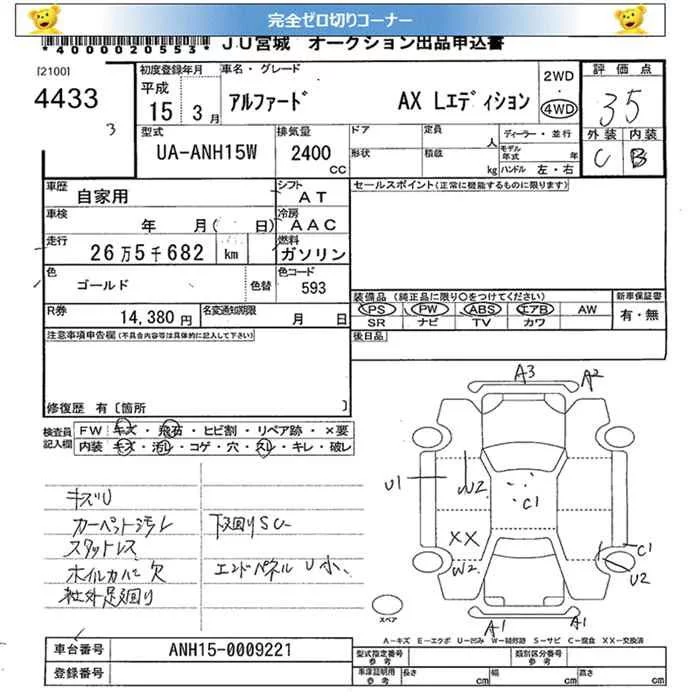 完全ゼロ切りコーナー
*4000020553* JU宮城 オークション出品申込書
[2100]
4433
3
初度登録年月
平成
15 3月
車名・グレード
アルファード AX Lエディション
2WD
・
4WD
評価点
35
外装 内装
C B
型式
UA-ANH15W
排気量
2400
CC
ドア
形状
定員
人
積載
kg
ディーラー・並行
モデル
年式 年
ハンドル 左・右
車歴
自家用
シフト
AT
車検
年 月( 日)
冷房
AAC
走行
26万5千682 km
燃料
ガソリン
色
ゴールド
色替
色コード
593
R券
14,380円
名変通知期限
月 日
セールスポイント(正常に機能するものに限ります)
装備品(純正品に限り○をつけてください)
PS PW ABS エアB AW
SR ナビ TV カワ
新車保証書
有・無
後日品
注意事項申告欄(不具合内容等は具体的に記入して下さい)
修復歴 有〔箇所 〕
検査員
記入欄
FW キズ・飛石・ヒビ割・リペア跡・×要
内装 キズ・汚れ・コゲ・穴・スレ・キレ・破レ
キズU
カーペット汚レ
スタットレス
ホイルカバー欠
社外足廻り
下廻りSC
エンドパネル U小、
A3
A2
U1
W2
C1
XX
W2
C1
U2
A1
A1
スペア
A-キズ E-エクボ U-凹み W-補修跡 S-サビ C-腐食 XX-交換済
車台番号
ANH15-0009221
登録番号
型式指定番号
参考
類別区分番号
参考
車庫証明用
参考
長さ cm
幅 cm
高さ cm